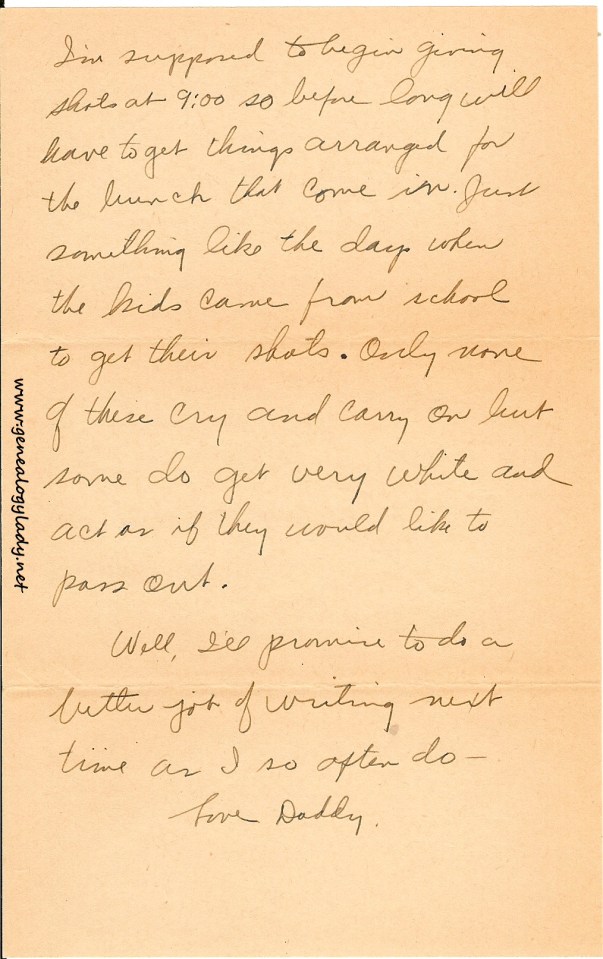 I'm supposed to begin giving
shots at 9:00 so before long will
have to get things arranged for
the bunch that come in. Just
something like the days when
the kids came from school
to get their shots. Only none
of these cry and carry on but
some do get very white and
act as if they would like to
pass out.
Well, I'll promise to do a
better job of writing next
time as I so often do —
Love Daddy.
www.genealogylady.net